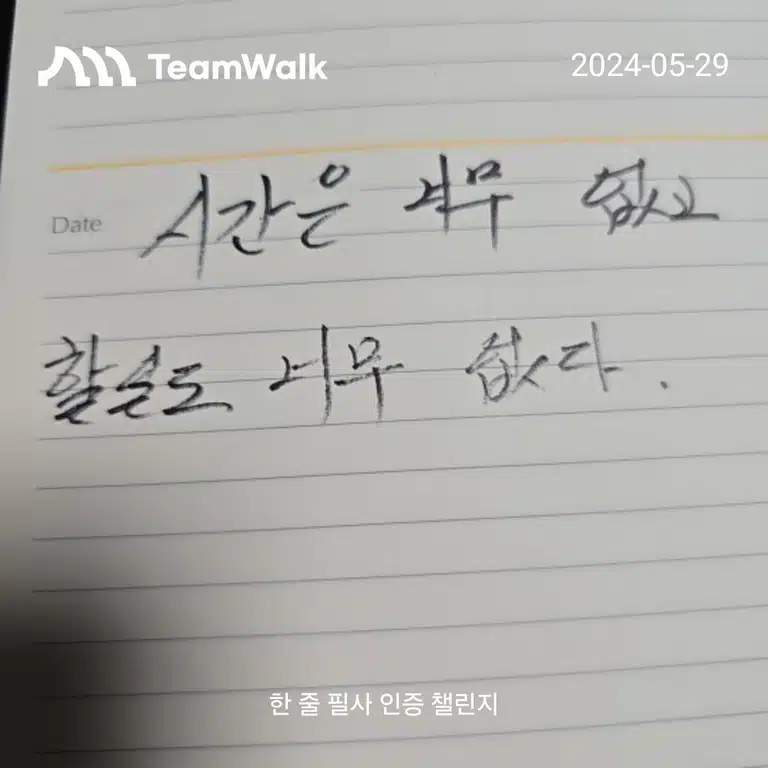 TeamWalk
2024-05-29
Date
시간은 너무 없고
할 일도 너무 없다.
한 줄 필사 인증 챌린지